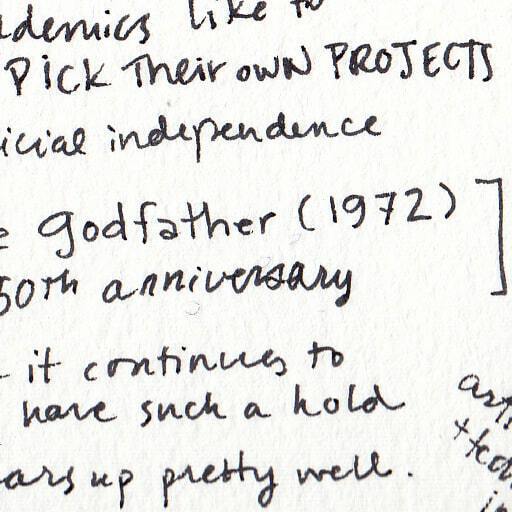 ademics like to
PICK Their OWN PROJECTS
icial independence
e godfather (1972)
50th anniversary
- it continues to
have such a hold
ears up pretty well.